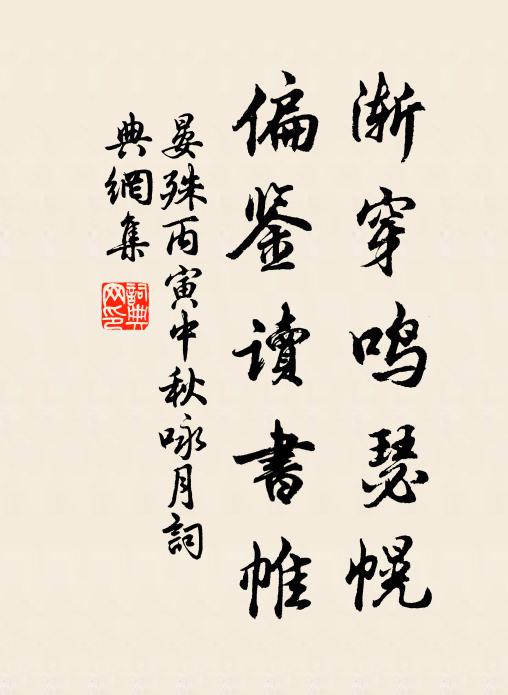 渐穿鸣瑟幌
偏鉴读书帷
晏殊丙寅中秋咏月詞
典網集
詞典网印